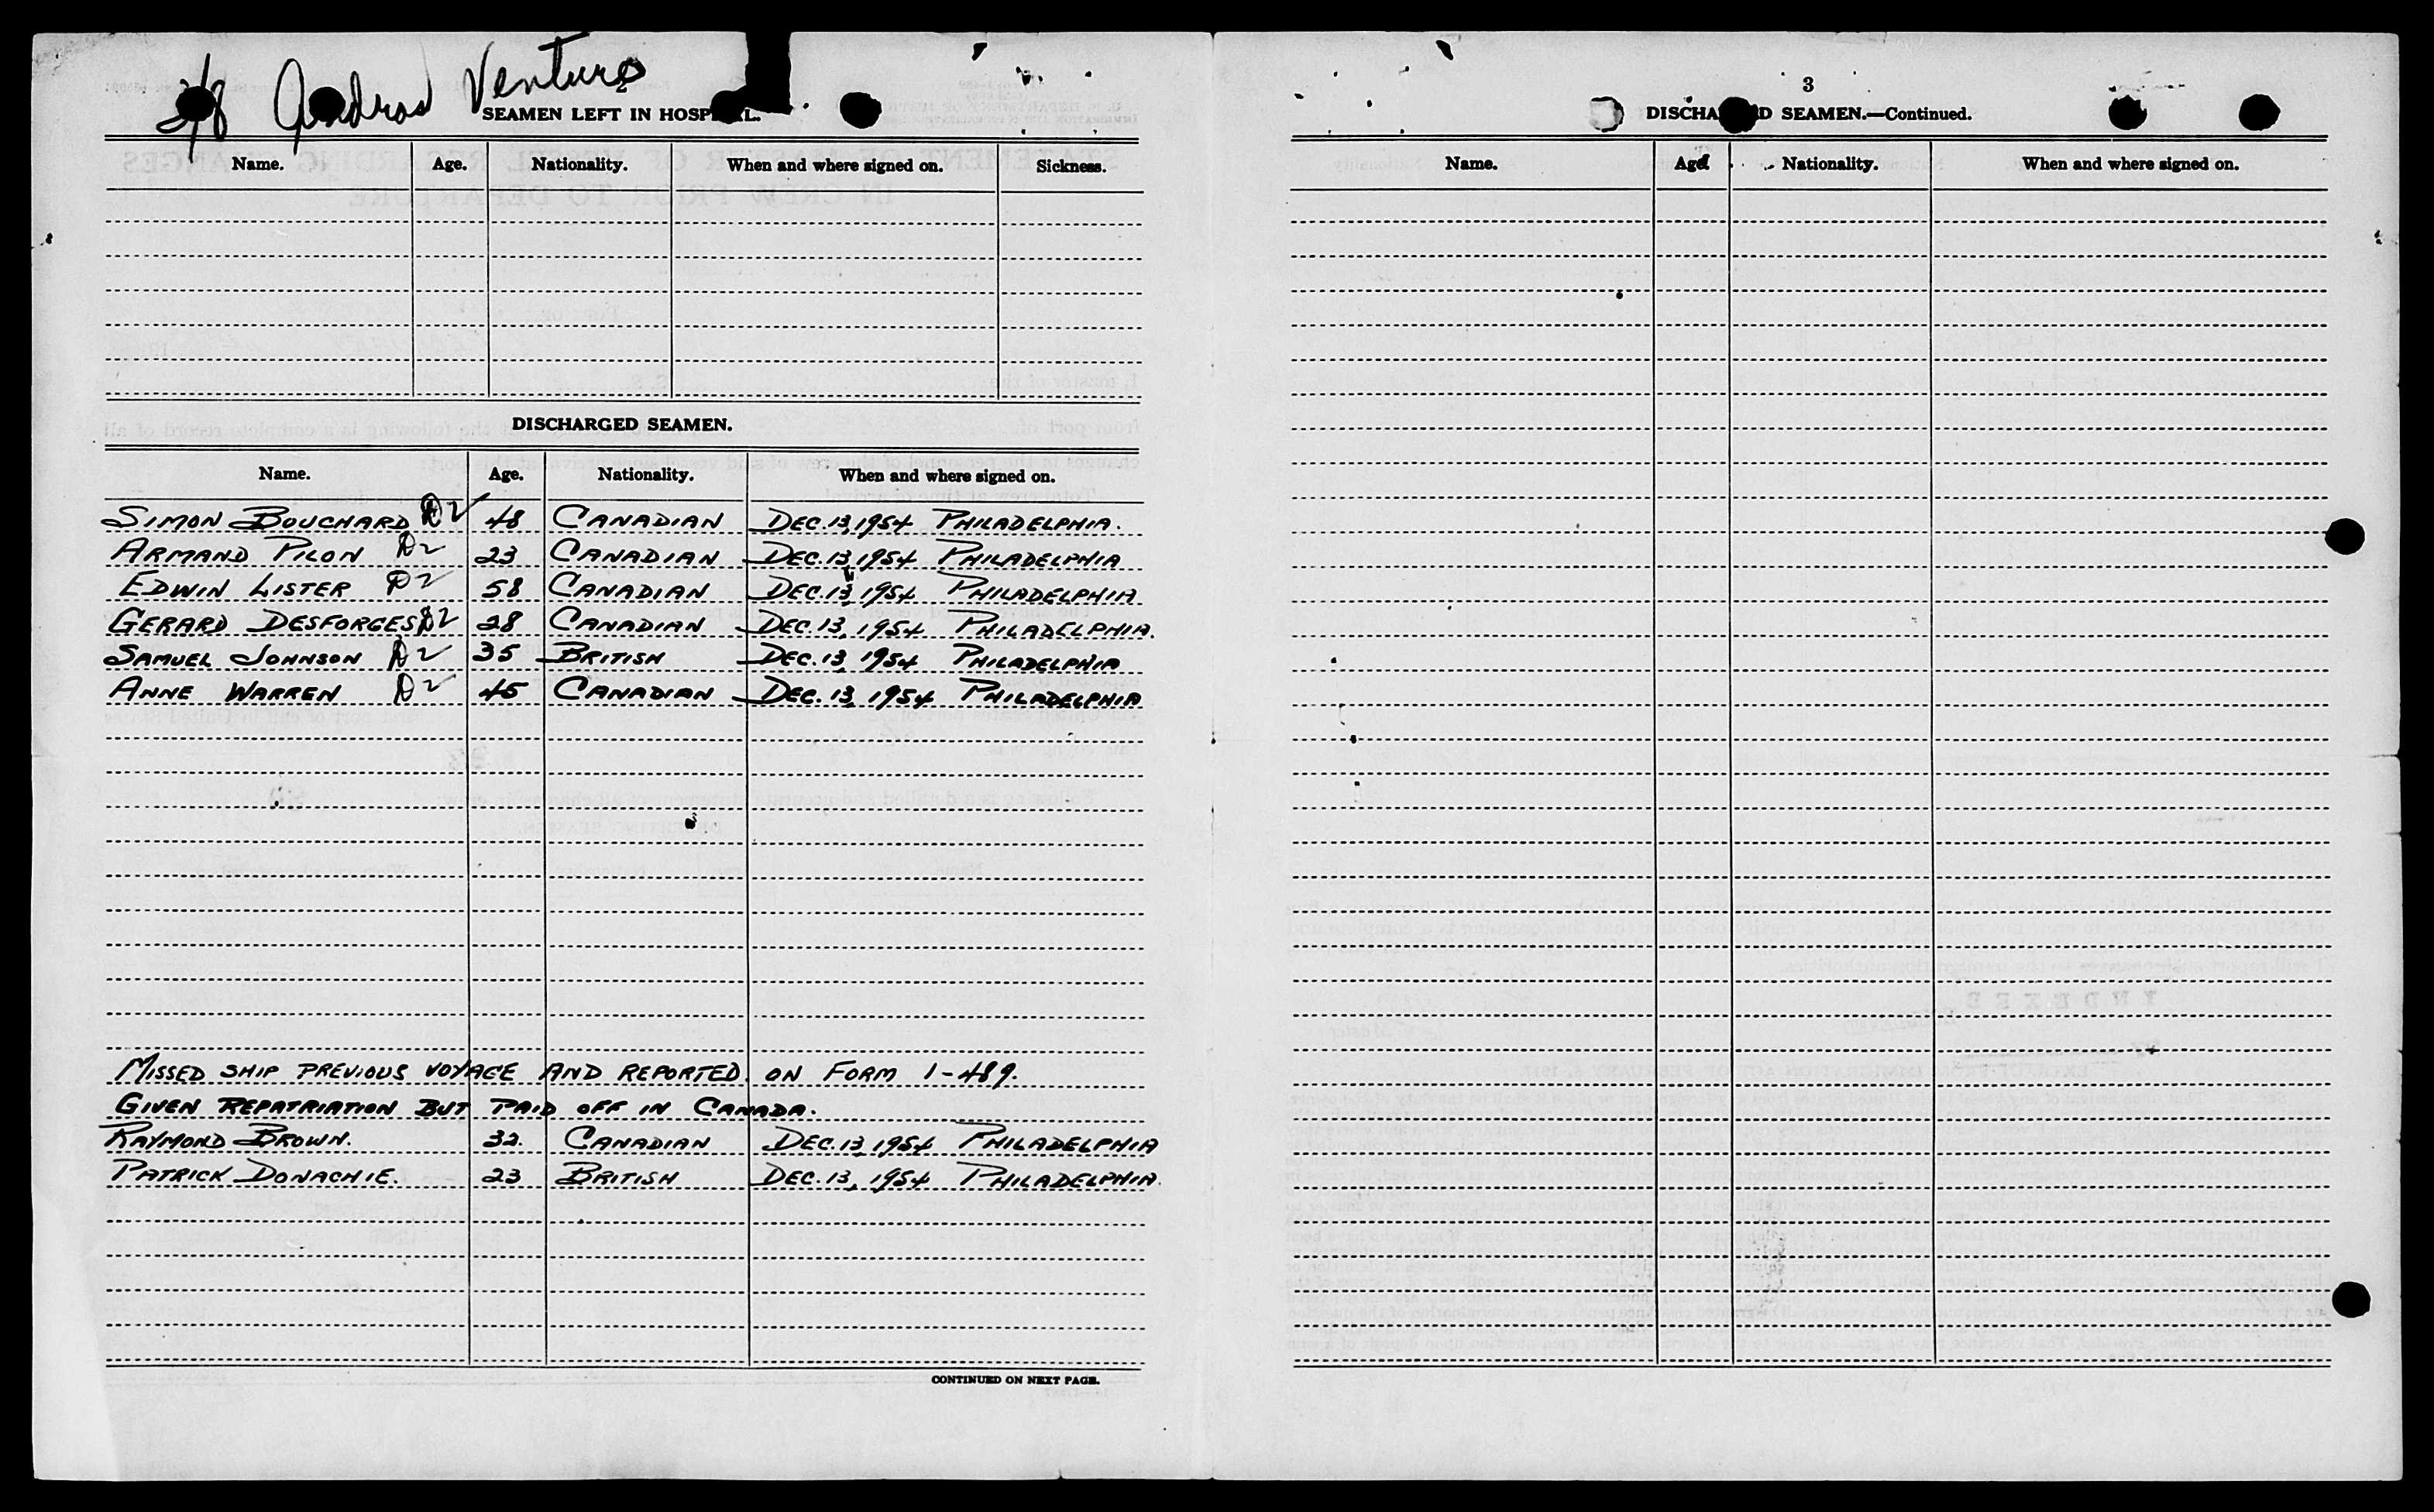 Andros Venture
2
SEAMEN LEFT IN HOSPITAL.
Name. Age. Nationality. When and where signed on. Sickness.
DISCHARGED SEAMEN.
Name. Age. Nationality. When and where signed on.
SIMON BOUCHARD D2 48 CANADIAN DEC. 13, 1954 PHILADELPHIA.
ARMAND PILON D2 23 CANADIAN DEC. 13, 1954 PHILADELPHIA
EDWIN LISTER D2 58 CANADIAN DEC. 13, 1954 PHILADELPHIA
GERARD DESFORGES D2 28 CANADIAN DEC. 13, 1954 PHILADELPHIA.
SAMUEL JOHNSON D2 35 BRITISH DEC. 13, 1954 PHILADELPHIA
ANNE WARREN D2 45 CANADIAN DEC. 13, 1954 PHILADELPHIA
MISSED SHIP PREVIOUS VOYAGE AND REPORTED ON FORM I-489.
GIVEN REPATRIATION BUT PAID OFF IN CANADA.
RAYMOND BROWN. 32. CANADIAN DEC. 13, 1954 PHILADELPHIA
PATRICK DONACHIE. 23 BRITISH DEC. 13, 1954 PHILADELPHIA.
CONTINUED ON NEXT PAGE.
3
DISCHARGED SEAMEN.—Continued.
Name. Age. Nationality. When and where signed on.